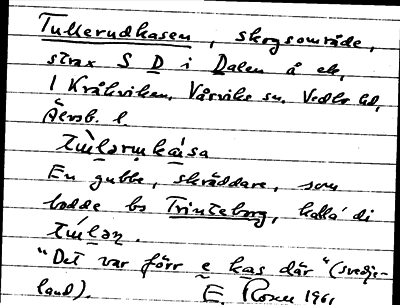 Tullerudkasen, skogsområde,
strax S D i Dalen å ek,
l Kråkviken, Vårviks sn, Vedbo hd,
Älvsb. l
En gubbe, skräddare, som
bodde bs Trinteborg, kalla' di
"Det var förr e kas där" (svedje-
land). E. Rosen 1961